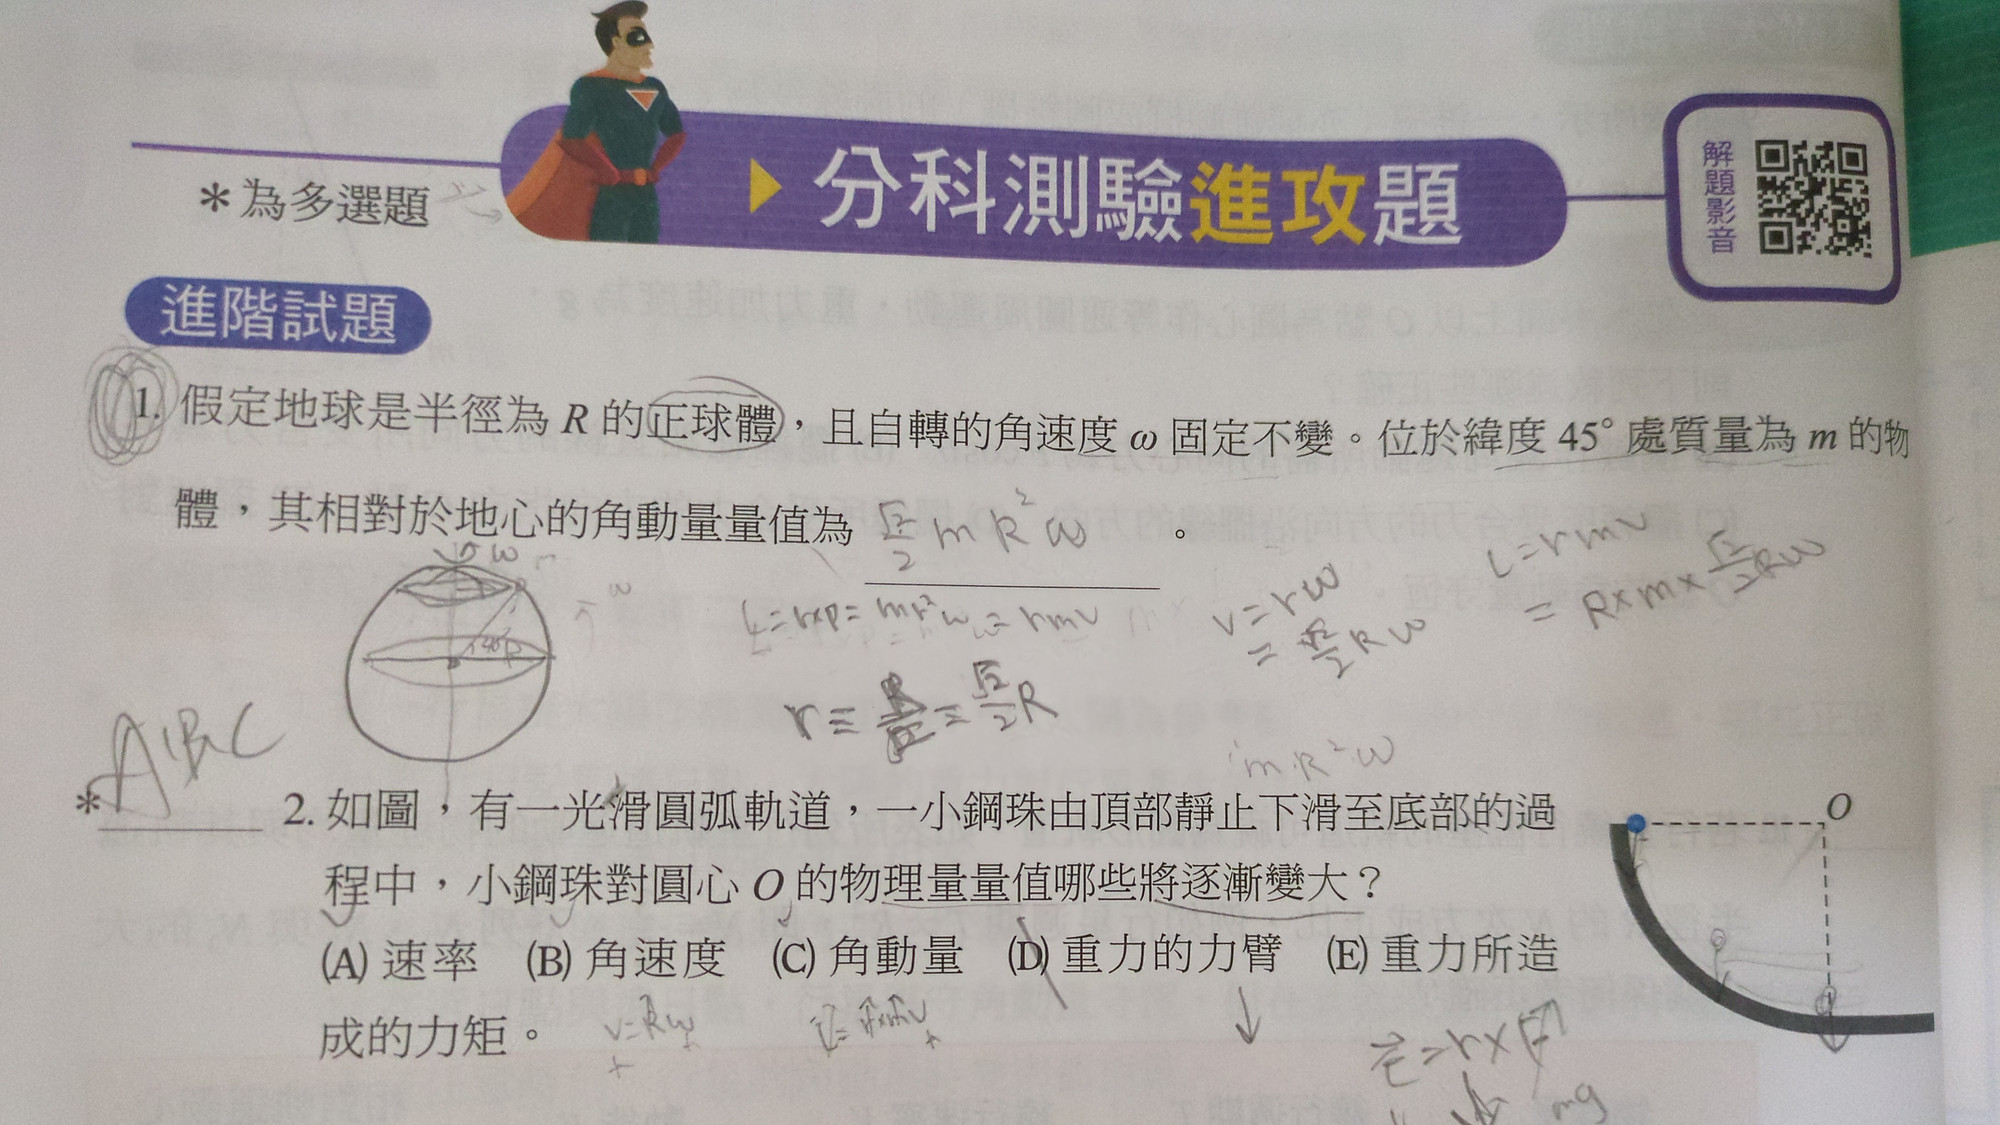 ＊為多選題
分科測驗進攻題
解題影音
進階試題
1. 假定地球是半徑為 R 的正球體，且自轉的角速度 ω 固定不變。位於緯度 45° 處質量為 m 的物
體，其相對於地心的角動量量值為 √2/2 m R² ω 。
ω
45° R
L=r×p=mr²ω=rmv
v=rω
=√2/2 Rω
L=rmv
=R×m×√2/2 Rω
=√2/2 R
mR²ω
ABC
＊ 2. 如圖，有一光滑圓弧軌道，一小鋼珠由頂部靜止下滑至底部的過
程中，小鋼珠對圓心 O 的物理量量值哪些將逐漸變大？
(A) 速率 (B) 角速度 (C) 角動量 (D) 重力的力臂 (E) 重力所造
成的力矩。
O
v=Rω
mg